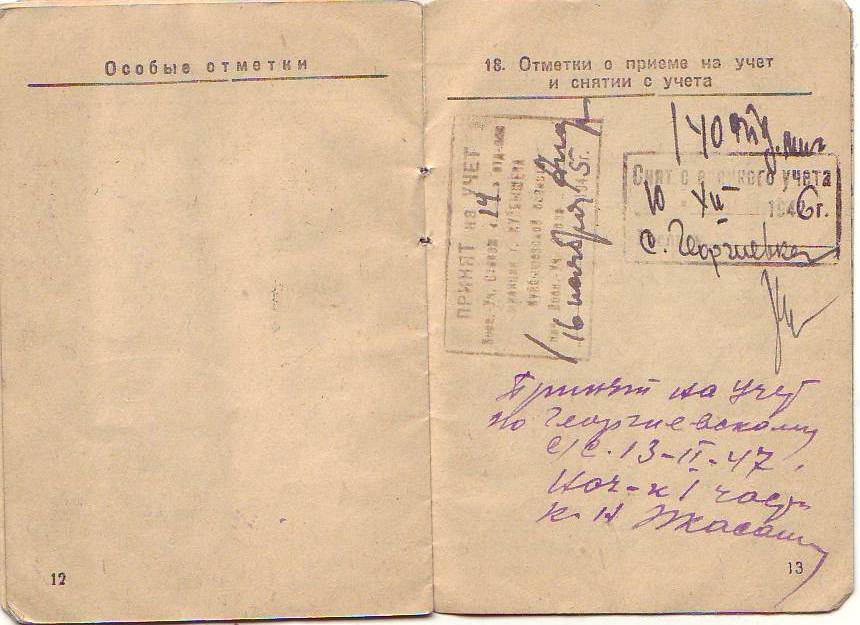 Особые отметки
12
18. Отметки о приеме на учет
и снятии с учета
ПРИНЯТ на УЧЕТ
Воен. Уч. Столом 14 отд-нию
милиции г. КУЙБЫШЕВА
Куйбышевской области
16 ноября 1945г.
140
Снят с воинского учета
10 XII 1946г.
с. Георгиевка
Принят на учет
по Георгиевскому
с/с. 13-II-47.
Нач-к 1 части
к-н
13